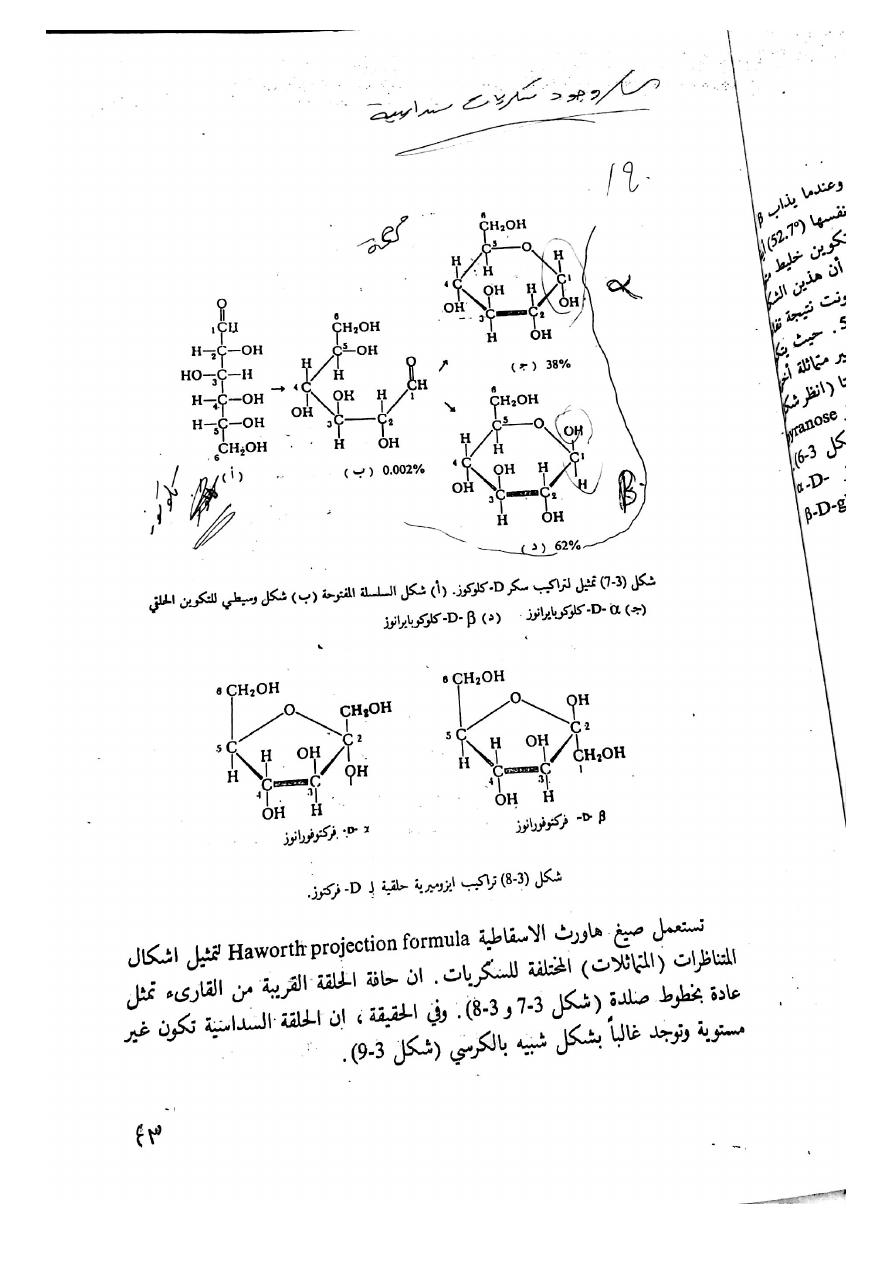 وجود سكريات سداسية
١٩.
وعندما يذاب β
نفسها (52.7°)
تكوين خليط
أن هذين
ونت نتيجة
5. حيث
ير متماثلة
(انظر
pyranose
كل 3-6).
α-D-
β-D-g
O
1 C H
H-2C-OH
HO-3C-H
H-4C-OH
H-5C-OH
6CH2OH
(أ)
→
6
CH2OH
5
C-OH
H H H O
4 C OH H CH
OH 3 C C 2
H OH
(ب) 0.002%
6
CH2OH
5 C O H
H H C 1
4 C OH H OH
OH 3 C C 2
H OH
(ج) 38%
α
CH2OH
5 C O OH
H H C 1
4 C OH H H
OH 3 C C 2
H OH
(د) 62%
β
شكل (3-7) تمثيل لتراكيب سكر D-كلوكوز. (أ) شكل السلسلة المفتوحة (ب) شكل وسيطي للتكوين الحلقي
(جـ) α -D-كلوكوبايرانوز (د) β -D-كلوكوبايرانوز
6 CH2OH
O CH2OH
5 C C 2
H H OH OH
4 C C 3
OH H
α -D- فركتوفورانوز
6 CH2OH
O OH
5 C C 2
H H OH CH2OH
4 C C 3 1
OH H
β -D- فركتوفورانوز
شكل (3-8) تراكيب ايزوميرية حلقية لـ D- فركتوز.
تستعمل صيغ هاورث الاسقاطية Haworth projection formula لتمثيل اشكال
المتناظرات (المتماثلات) المختلفة للسكريات. ان حافة الحلقة القريبة من القارىء تمثل
عادة بخطوط صلدة (شكل 3-7 و 3-8). وفي الحقيقة، ان الحلقة السداسية تكون غير
مستوية وتوجد غالباً بشكل شبيه بالكرسي (شكل 3-9).
٤٣